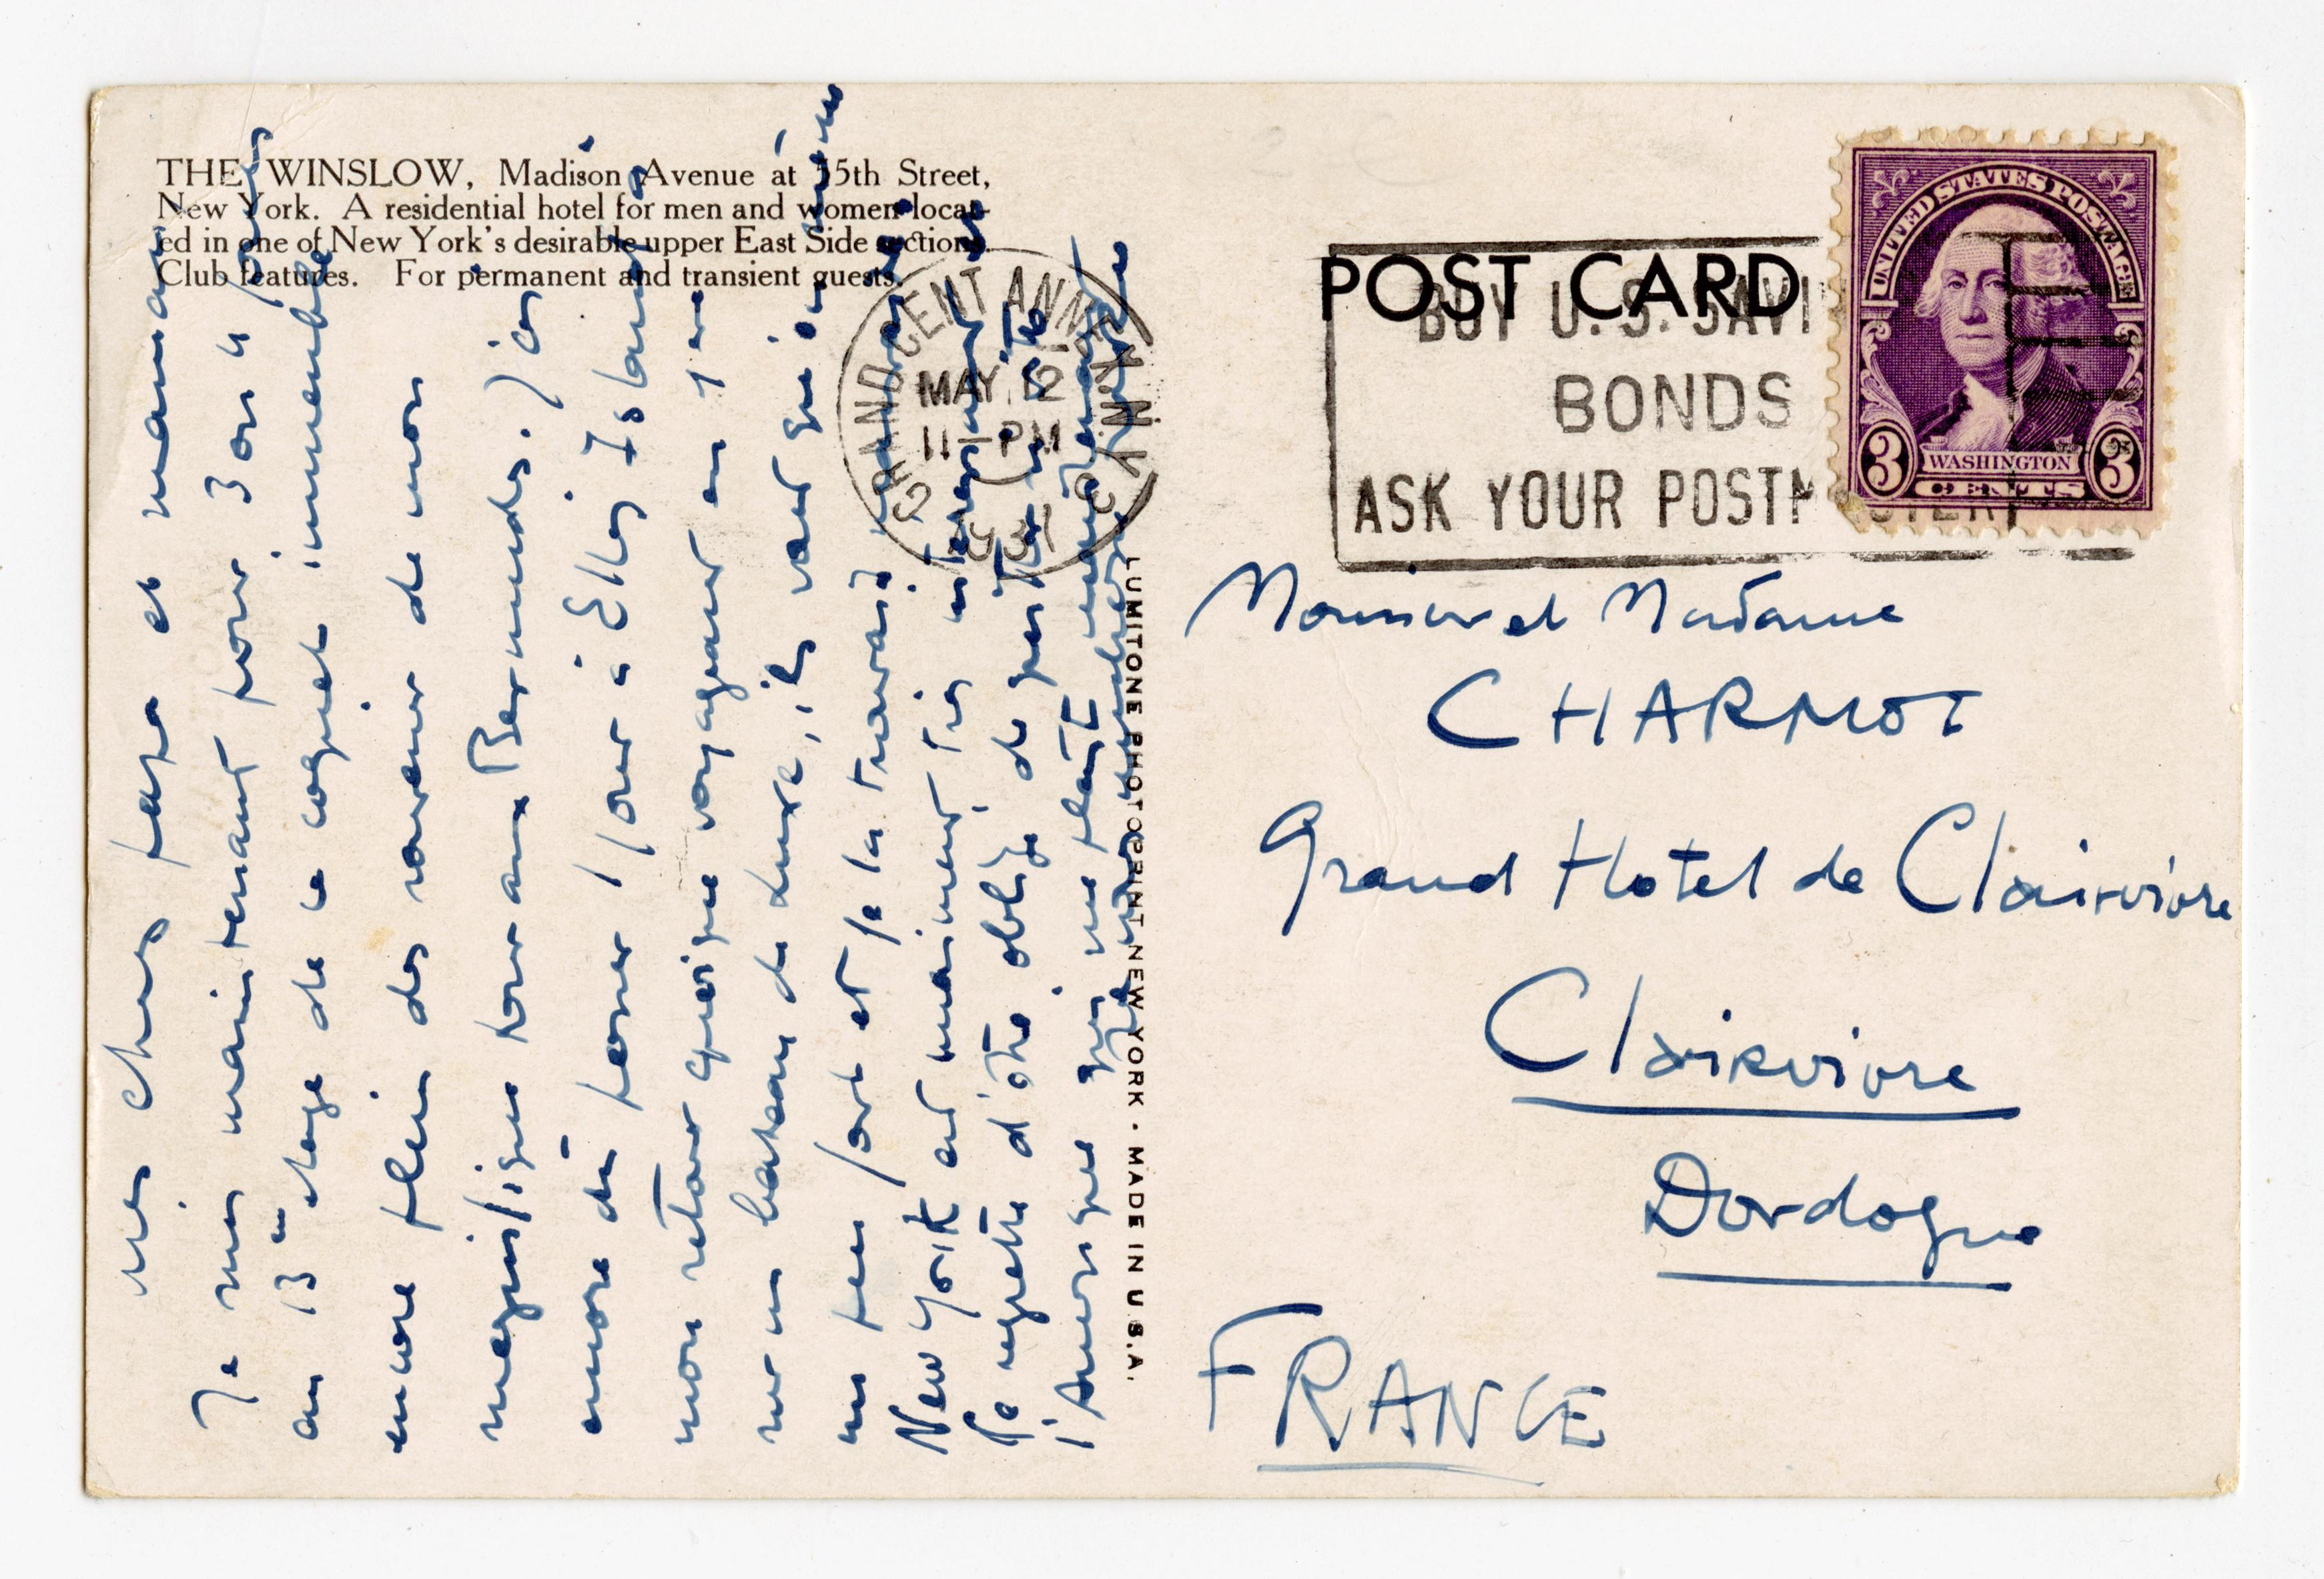 THE WINSLOW, Madison Avenue at 55th Street,
New York. A residential hotel for men and women locat-
ed in one of New York's desirable upper East Side sections.
Club features. For permanent and transient guests.
POST CARD
GRAND CENT ANNEX N.Y.
MAY 12
11 PM
BUY U.S. SAVI
BONDS
ASK YOUR POSTMASTER
UNITED STATES POSTAGE
WASHINGTON
3 CENTS 3
Mes chers papa et maman
Je suis maintenant pour 3 ou 4 jours
au 13e étage de ce coquet immeuble
encore plein des souvenirs de mon
magnifique tour aux Bermudes. J'ai
encore dû passer 1 jour à Ellis Island à
mon retour quoique voyageant en
sur un bateau de luxe, ils sont
un peu fort et je la trouvais
New York est vraiment très
Je regrette d'être obligé de
qui me plaît
LUMITONE PHOTOPRINT NEW YORK · MADE IN U.S.A.
Monsieur et Madame
CHARMOT
Grand Hotel de Clairvivre
Clairvivre
Dordogne
FRANCE